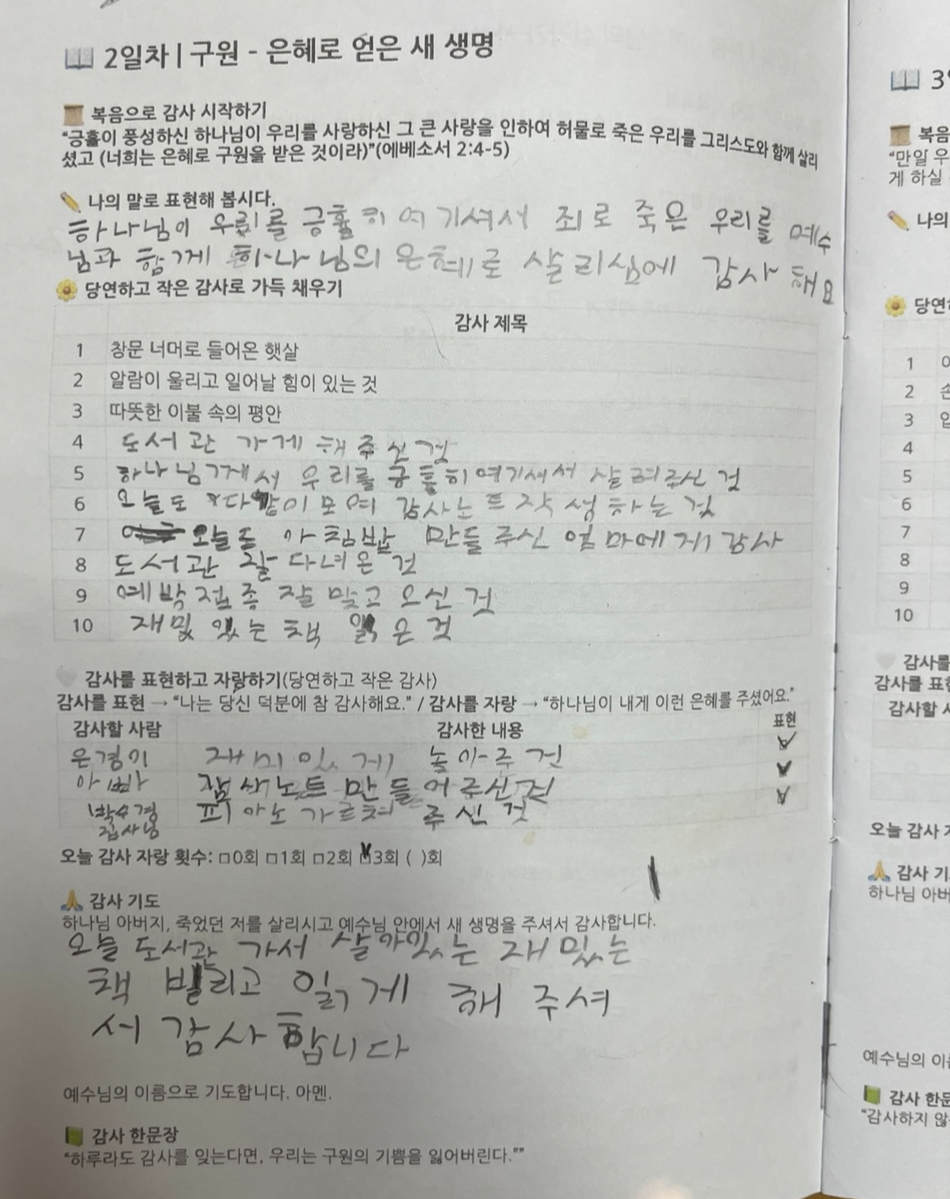 2일차 | 구원 - 은혜로 얻은 새 생명
복음으로 감사 시작하기
"긍휼이 풍성하신 하나님이 우리를 사랑하신 그 큰 사랑을 인하여 허물로 죽은 우리를 그리스도와 함께 살리
셨고 (너희는 은혜로 구원을 받은 것이라)"(에베소서 2:4-5)
나의 말로 표현해 봅시다.
하나님이 우리를 긍휼히 여기셔서 죄로 죽은 우리를 예수
님과 함께 하나님의 은혜로 살리심에 감사해요
당연하고 작은 감사로 가득 채우기
감사 제목
1 창문 너머로 들어온 햇살
2 알람이 울리고 일어날 힘이 있는 것
3 따뜻한 이불 속의 평안
4 도서관 가게 해주신 것
5 하나님께서 우리를 긍휼히여기셔서 살려주신 것
6 오늘도 다같이 모여 감사노트 작성하는 것
7 오늘도 아침밥 만들주신 엄마에게 감사
8 도서관 잘 다녀온 것
9 예방접종 잘 맞고 오신 것
10 재밌있는 책 읽은 것
감사를 표현하고 자랑하기(당연하고 작은 감사)
감사를 표현 → "나는 당신 덕분에 참 감사해요." / 감사를 자랑 → "하나님이 내게 이런 은혜를 주셨어요."
감사할 사람 감사한 내용 표현
은경이 재미있게 놀아주 것 A
아빠 감사노트 만들어주신것 A
박수경 피아노 가르쳐 주신 것 A
집사님
오늘 감사 자랑 횟수: □0회 □1회 □2회 ☑3회 ( )회
감사 기도
하나님 아버지, 죽었던 저를 살리시고 예수님 안에서 새 생명을 주셔서 감사합니다.
오늘 도서관 가서 살아있는 재밌는
책 빌리고 읽게 해 주셔
서 감사합니다
예수님의 이름으로 기도합니다. 아멘.
감사 한문장
"하루라도 감사를 잊는다면, 우리는 구원의 기쁨을 잃어버린다.""
3
복음
"만일 우
게 하실
나의
당연
1
2
3
4
5
6
7
8
9
10
감사를
감사를 표현
감사할 사
오늘 감사 자
감사 기
하나님 아버
예수님의 이
감사 한문
"감사하지 않